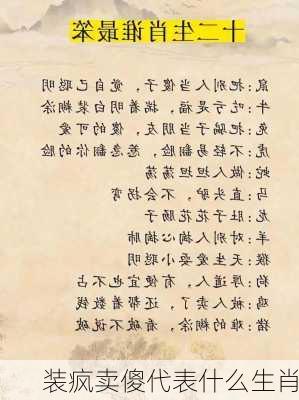 十二生肖谁最笨
鼠:把别人当傻子,觉自己聪明
牛:吃亏是福,揣着明白装糊涂
兔:把骗子当朋友,傻的可爱
虎:不轻易翻脸,惹急翻你的脸
蛇:做人坦坦荡荡
马:直头驴,不会拐弯
龙:肚子花花肠子
羊:对别人掏心掏肺
猴:天生爱耍小聪明
狗:厚道人,有便宜也不占
鸡:被人卖了,还帮着数钱
猪:难的糊涂,看破不说破
装疯卖傻代表什么生肖